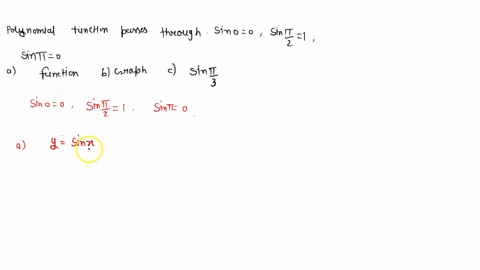 Polynomial function passes through sin0=0, sin π/2 =1,
sinπ=0
a) function b) Graph c) sin π/3
sin0=0, sin π/2 =1, sinπ=0
a) y= sinx